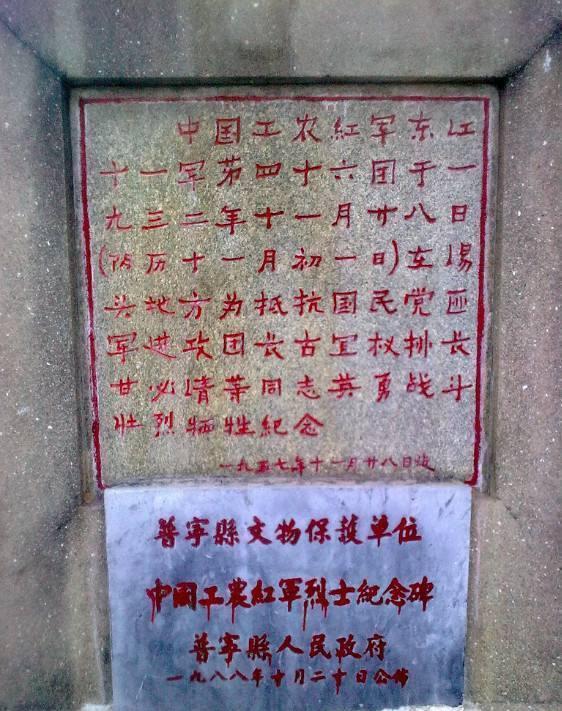 中国工农紅军东江
十一军第四十六团于一
九三二年十一月廿八日
(阴历十一月初一日)在埸
头地方为抵抗国民党匪
军进攻团长古宜权排长
甘必靖等同志英勇战斗
壮烈牺牲紀念
一九五七年十一月廿八日竣
普寧縣文物保護单位
中國工農紅軍烈士紀念碑
普寧縣人民政府
一九八八年十月二十日公佈